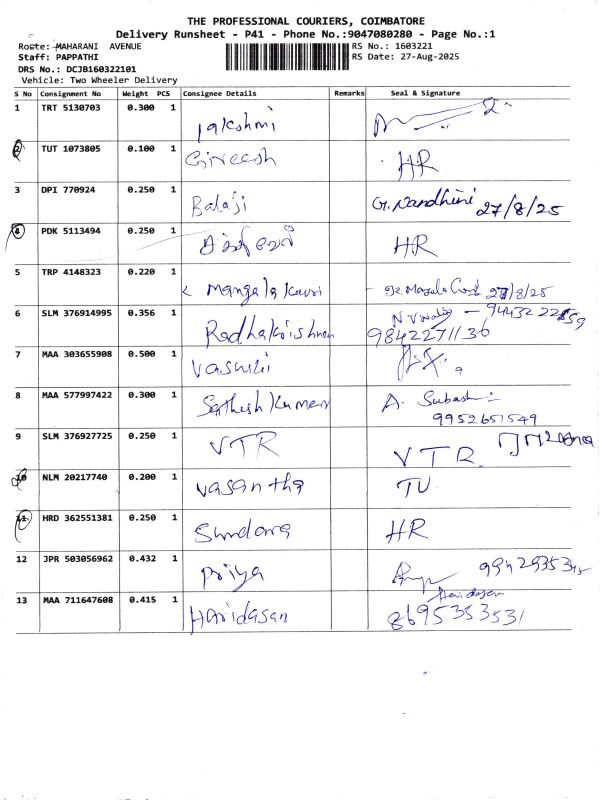 THE PROFESSIONAL COURIERS, COIMBATORE
Delivery Runsheet - P41 - Phone No.:9047080280 - Page No.:1
Route: MAHARANI AVENUE RS No.: 1603221
Staff: PAPPATHI RS Date: 27-Aug-2025
DRS No.: DCJB160322101
Vehicle: Two Wheeler Delivery
S No Consignment No Weight PCS Consignee Details Remarks Seal & Signature
1 TRT 5130703 0.300 1 Lakshmi
2 TUT 1073805 0.100 1 Gireesh HR
3 DPI 770924 0.250 1 Balaji G. Nandhini 27/8/25
4 PDK 5113494 0.250 1 HR
5 TRP 4148323 0.220 1 Mangala Gowri 27/8/25
6 SLM 376914995 0.356 1 Radhakrishnan 9842271136
7 MAA 303655908 0.500 1
8 MAA 577997422 0.300 1 Sathesh Kumar A. Subash
9952651549
9 SLM 376927725 0.250 1 VTR VTR
10 NLM 20217740 0.200 1 Vasantha
11 HRD 362551381 0.250 1 HR
12 JPR 503056962 0.432 1 Priya
13 MAA 711647608 0.415 1 Haridasan Haridasan
8695353531